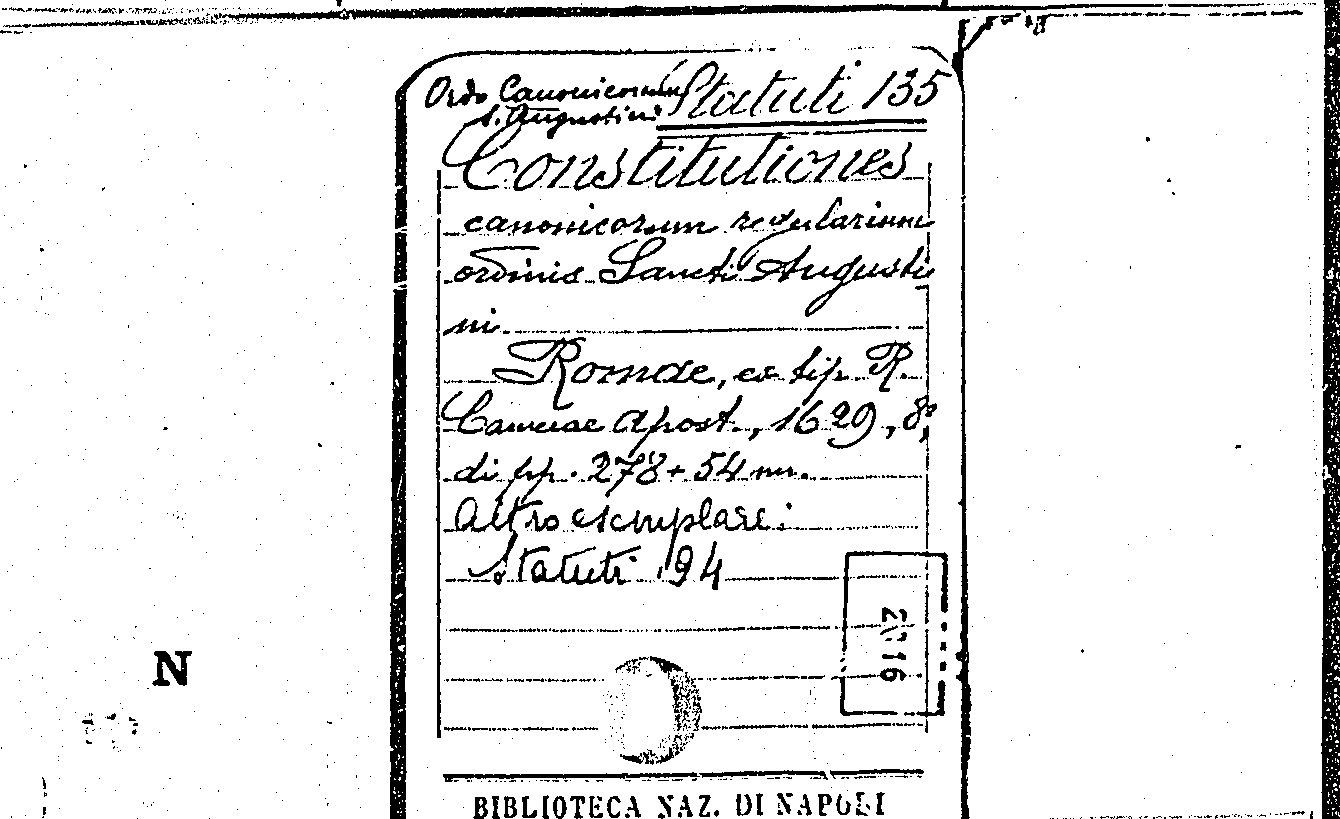 Ordo Canonicorum
S. Augustini
Statuti 135
Constitutiones
canonicorum regularium
ordinis Sancti Augusti
ni.
Romae, ex tip. R.
Camerae Apost., 1629, 8º,
di pp. 278 + 54 nn.
Altro esemplare:
Statuti 194
2016
N
BIBLIOTECA NAZ. DI NAPOLI